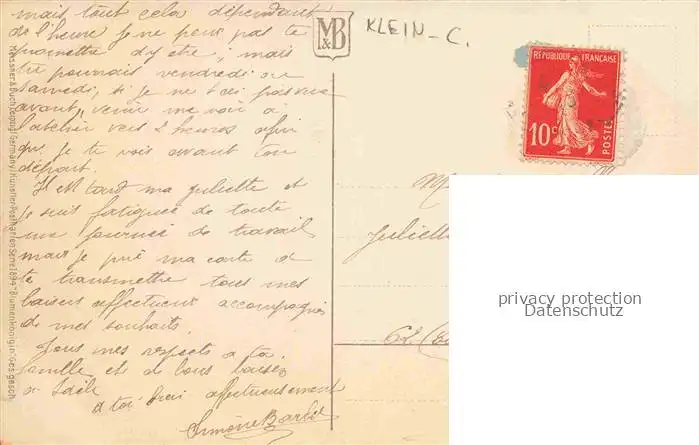 mais tout cela dépendant
de l'heure je ne peux pas te
promettre d'y être ; mais
tu pourrais vendredi ou
samedi, si je ne t'ai pas vue
avant, venir me voir à
l'atelier vers 2 heures afin
que je te vois avant ton
départ.
Il est tard ma Juliette et
je suis fatiguée de toute
une journée de travail
mais je prie ma carte de
te transmettre tous mes
baisers affectueux accompagnés
de mes souhaits.
Tous mes respects à ta
famille et de bons baisers
à
à toi bien affectueusement
Simone
M&B
KLEIN-C.
RÉPUBLIQUE FRANÇAISE
10c
POSTES
Juliette
62,
privacy protection
Datenschutz
Meissner & Buch Leipzig (Germany) Künstler-Postkarten Serie 1894 "Blumenkönigin" Ges. gesch.